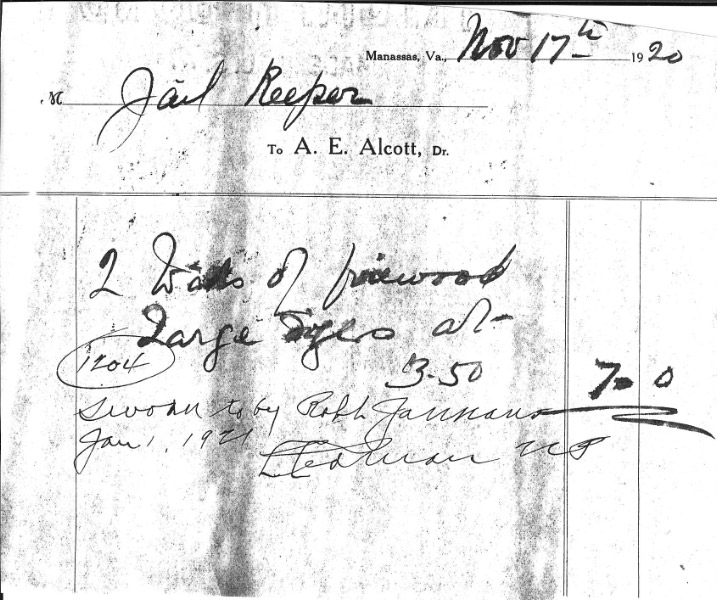 Manassas, Va., Nov 17th 1920
M Jail Keeper
To A. E. Alcott, Dr.
2 loads of firewood
Large at
1204
3.50 7 0
Sworn to by Robt
Jan 1, 1921
NP